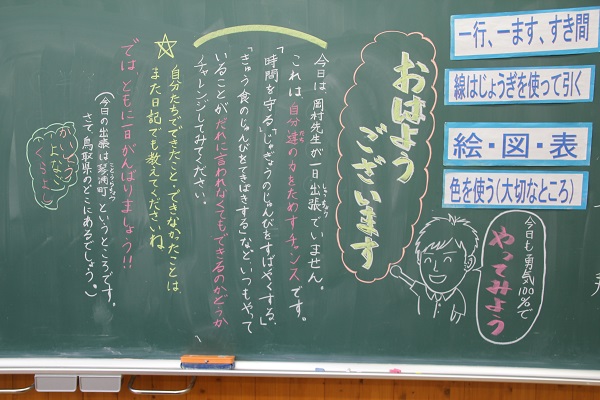 一行、一ます、すき間
線はじょうぎを使って引く
絵・図・表
色を使う(大切なところ)
今日も勇気100%で
やってみよう
おはよう
ございます
今日は岡村先生が一日出張でいません。
これは自分達の力をためすチャンスです。
「時間を守る」「じゅぎょうのじゅんびをすばやくする」
「きゅう食のじゅんびをてきぱきする」などいつもやって
いることがだれに言われなくてもできるのかどうか
チャレンジしてみてください。
☆自分たちでできたこと・できなかったことは
また日記でも教えてくださいね
では、ともに一日がんばりましょう!!
(今日の出張は琴浦町というところです。
さて鳥取県のどこにあるでしょう。)